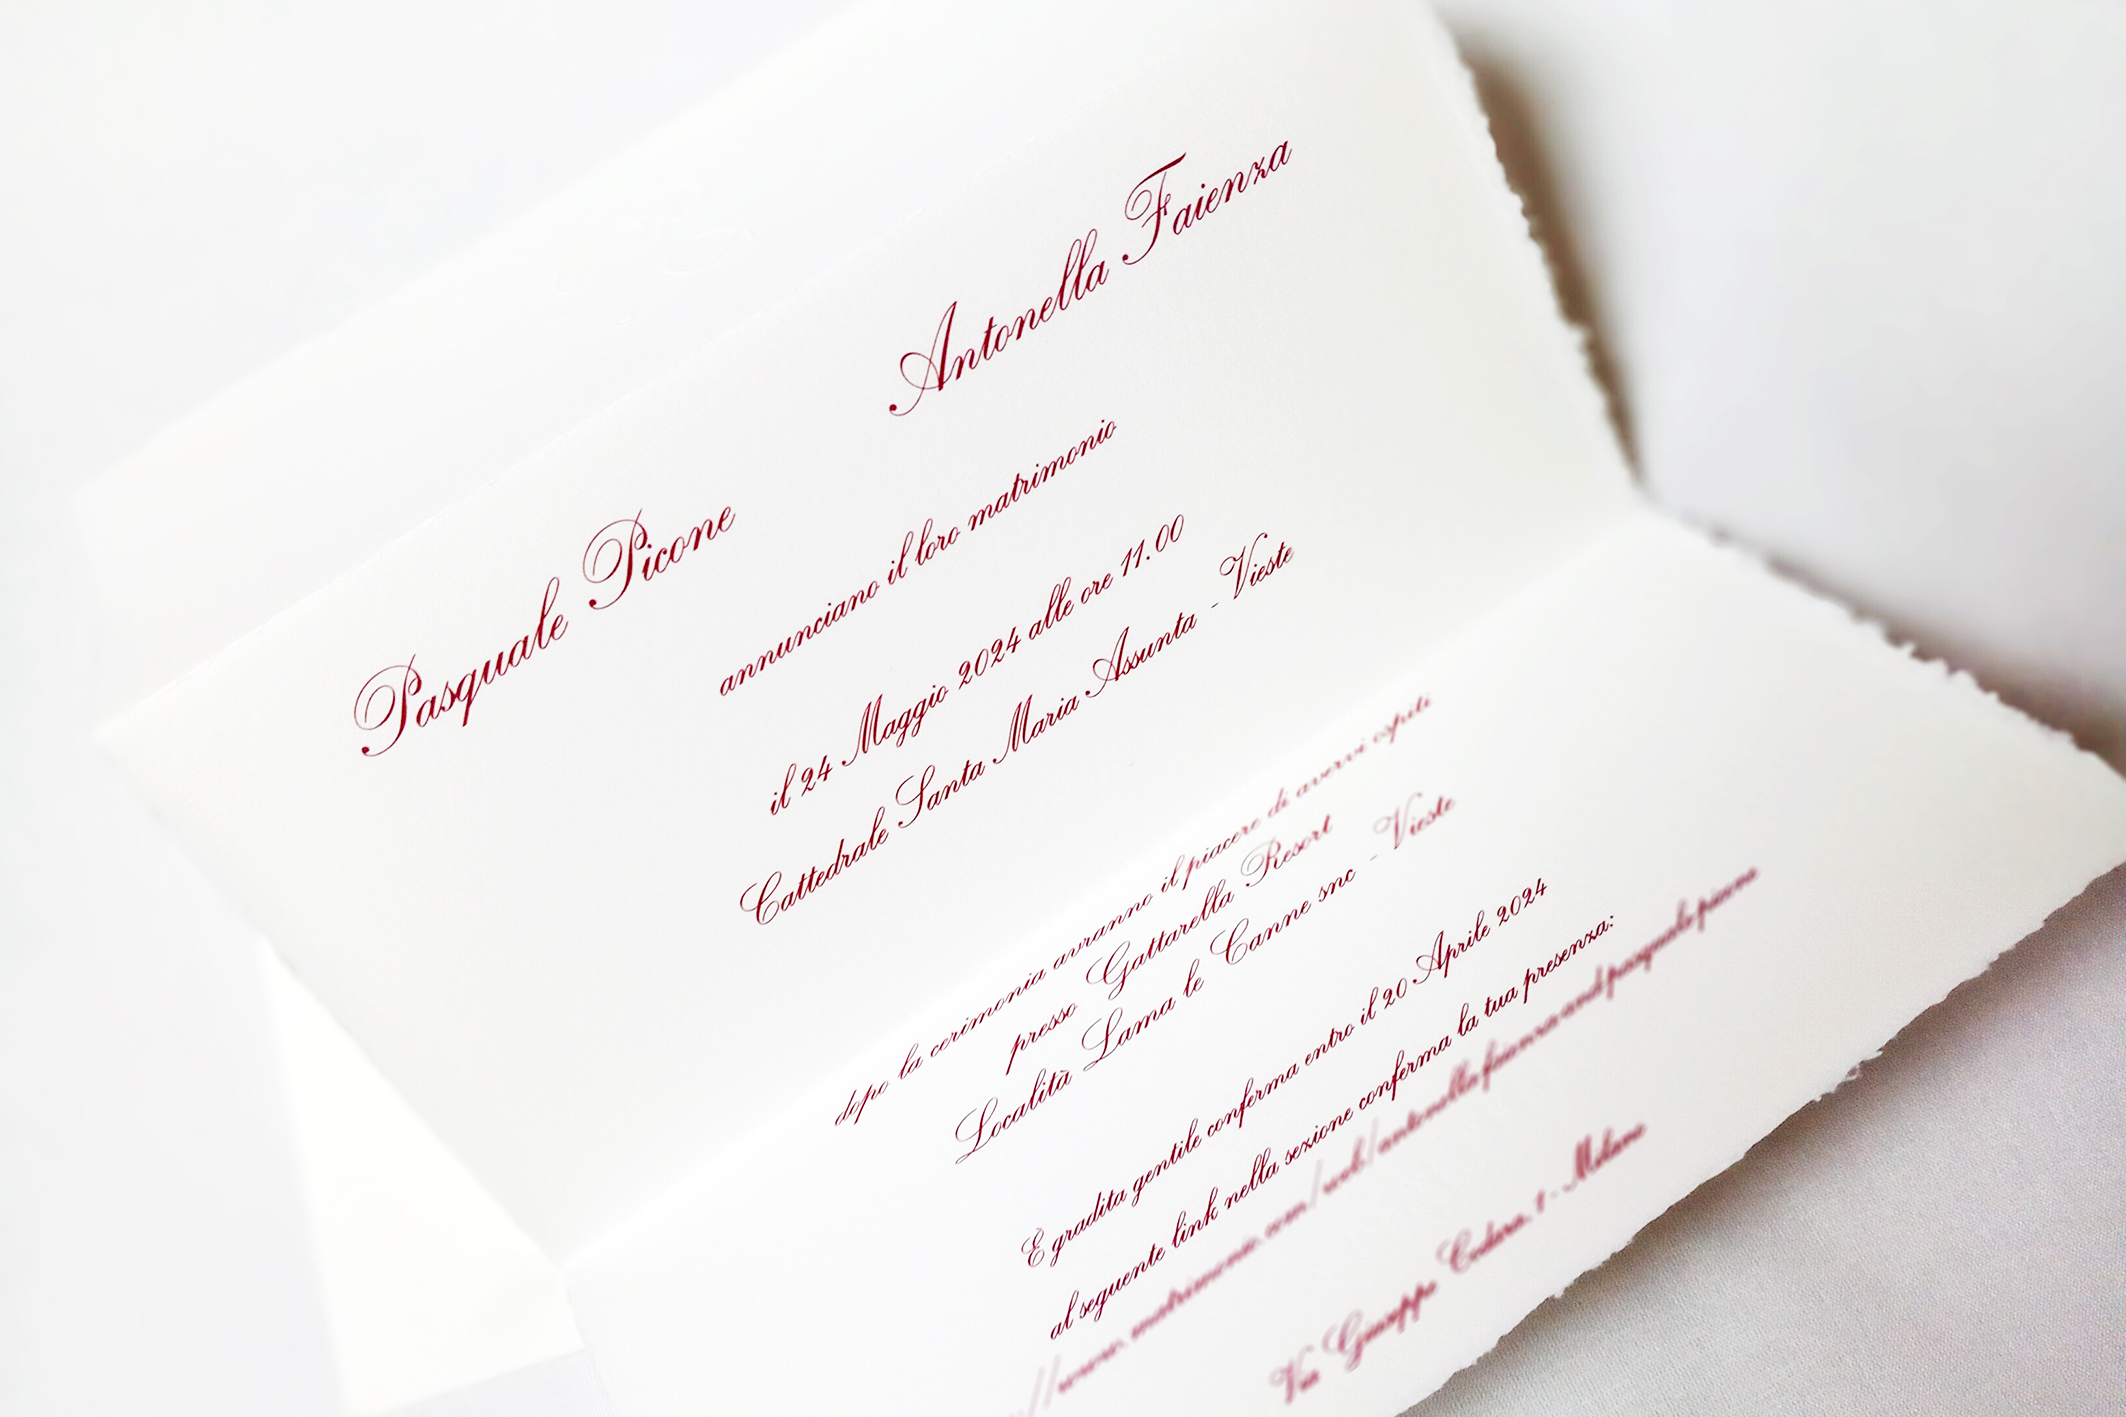 Pasquale Picone Antonella Faienza
annunciano il loro matrimonio
il 24 Maggio 2024 alle ore 11.00
Cattedrale Santa Maria Assunta - Vieste
dopo la cerimonia avranno il piacere di avervi ospiti
presso Gattarella Resort
Località Lama le Canne snc - Vieste
È gradita gentile conferma entro il 20 Aprile 2024
al seguente link nella sezione conferma la tua presenza:
//www.matrimonio.com/web/antonella-faienza-and-pasquale-picone
Via Giuseppe 1 - Milano